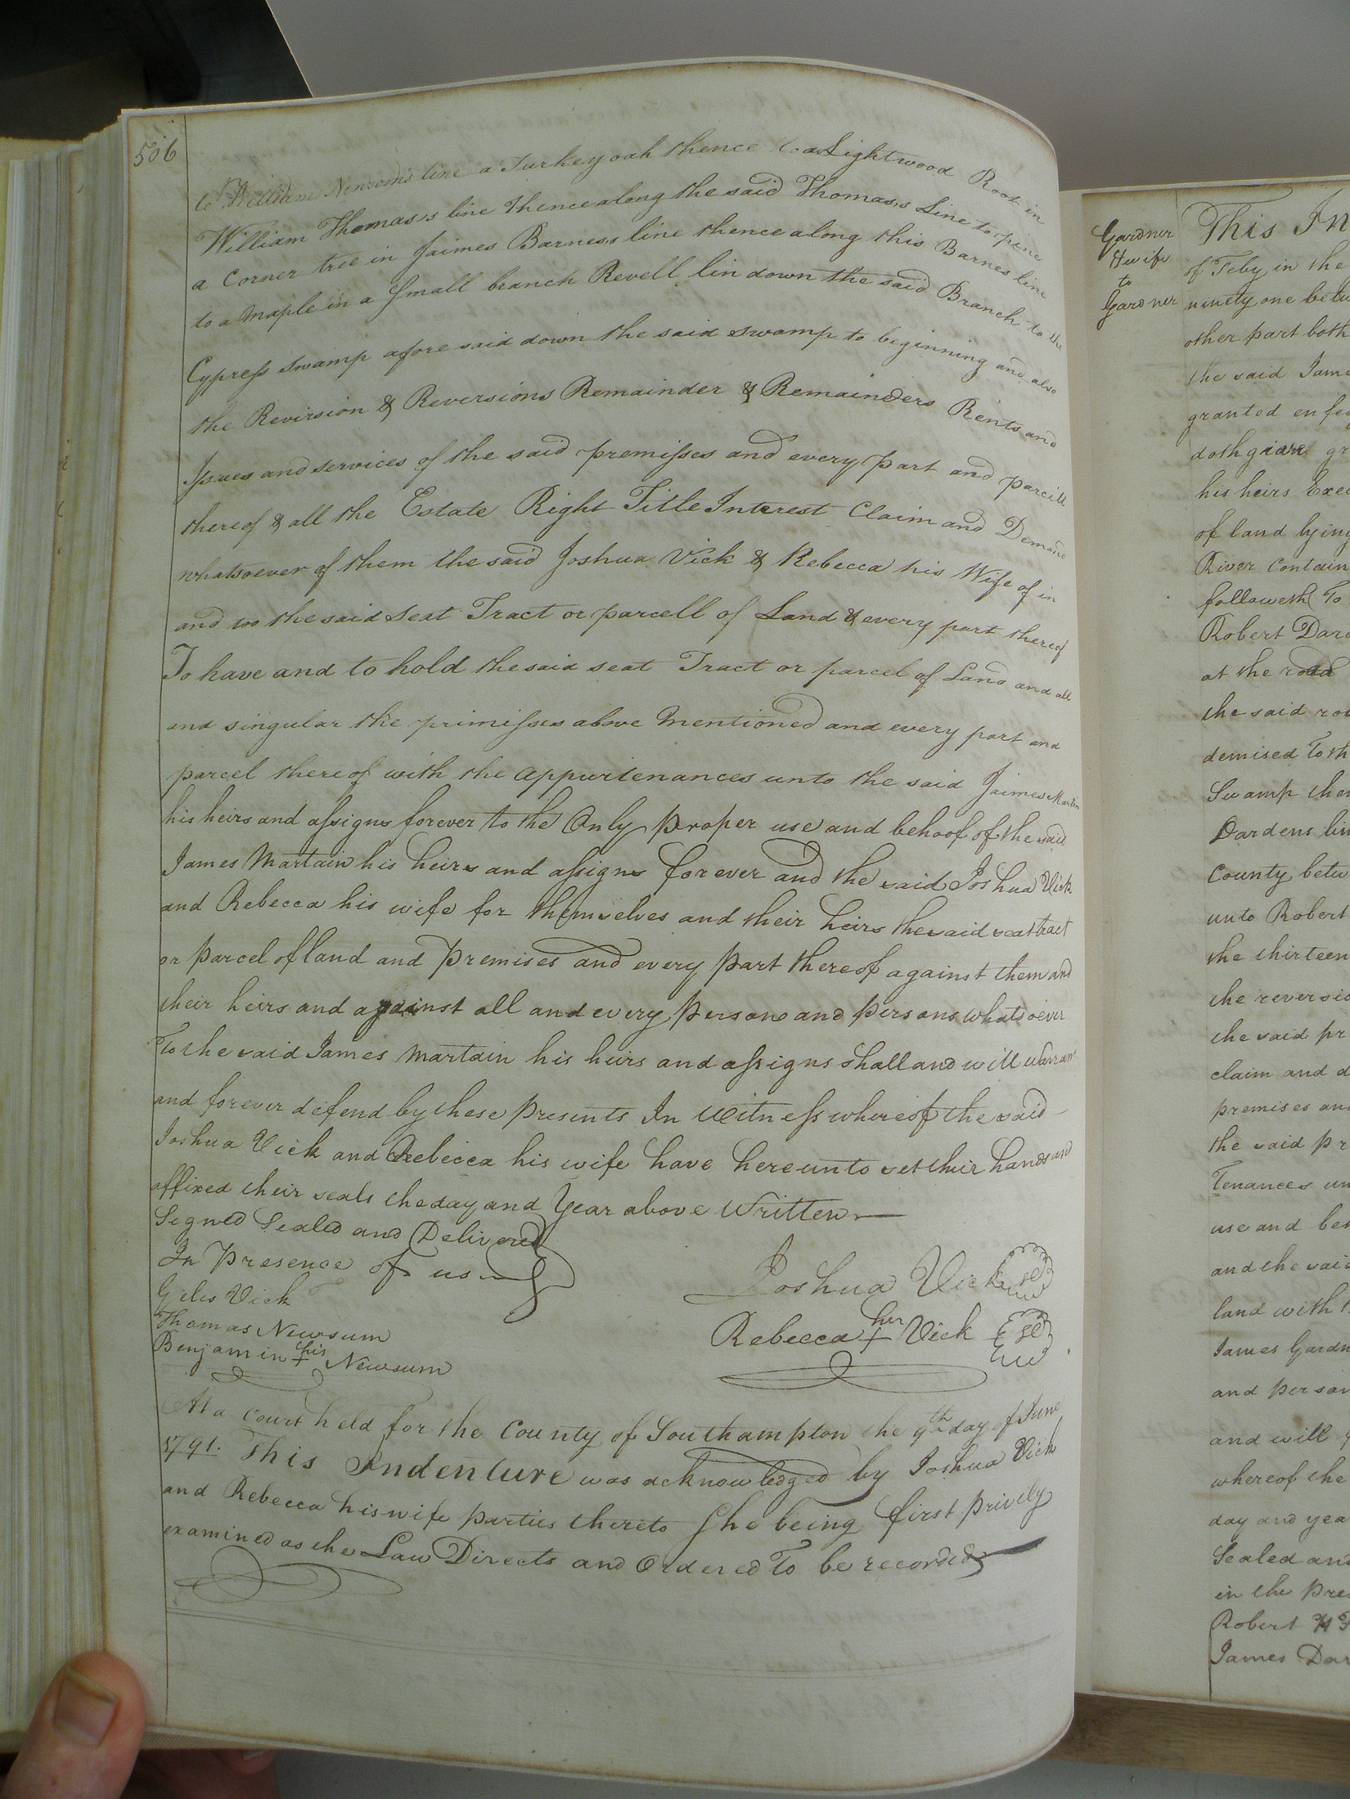 506
to William Newsoms line a Turkey oak thence to a Lightwood Root in
William Thomas,s line thence along the said Thomas,s Line to pine
a Corner tree in Jaimes Barness line thence along this Barnes line
to a maple in a Small branch Revell lin down the said Branch to the
Cypress swamp afore said down the said swamp to beginning and also
the Revirsion & Reversions Remainder & Remainders Rients and
Issues and services of the said premisses and every part and parcill
thereof & all the Estate Right Title Interest Claim and Demand
whatsoever of them the said Joshua Vick & Rebecca his Wife of in
and too the said Seat Tract or parcell of Land & every part thereof
To have and to hold the said seat Tract or parcel of Land and all
and singular the primisses above Mentioned and every part and
parcel thereof with the appurtenances unto the said Jaimes Martin
his heirs and assigns forever to the Only proper use and behoof of the said
James Martain his heirs and assigns forever and the said Joshua Vick
and Rebecca his wife for themselves and their heirs the said seat tract
or parcel of land and premises and every part thereof against them and
their heirs and against all and every persone and persons whatsoever
To the said James martain his heirs and assigns shall and will warrant
and forever defend by these presents In Witness whereof the said
Joshua Vick and Rebecca his wife have hereunto set their hands and
affixed their seals the day and Year above Written
Signed Sealed and Delivered
In Presence of us
Giles Vick
Thomas Newsum
Benjamin his + Newsum
Joshua Vick
Rebecca her + Vick
At a Court held for the County of Southampton the 9th day of June
1791. This Indenture was acknowledged by Joshua Vick
and Rebecca his wife parties thereto She being first privily
examined as the Law Directs and Ordered To be recorded
Gardner
& wife
to
Gardner
This In
of Feby in the
ninety one betw
other part both
the said Jame
granted enfeo
doth give gr
his heirs Exec
of land lying
River Contain
followeth To
Robert Dard
at the road
the said roa
demised To th
Swamp then
Dardens lin
County betw
unto Robert
the thirteen
the reversio
the said pr
claim and d
premises and
the said pr
Tenances un
use and beh
and the said
land with t
James Gardn
and person
and will
whereof the
day and yea
Sealed and
in the pres
Robert
James Dar